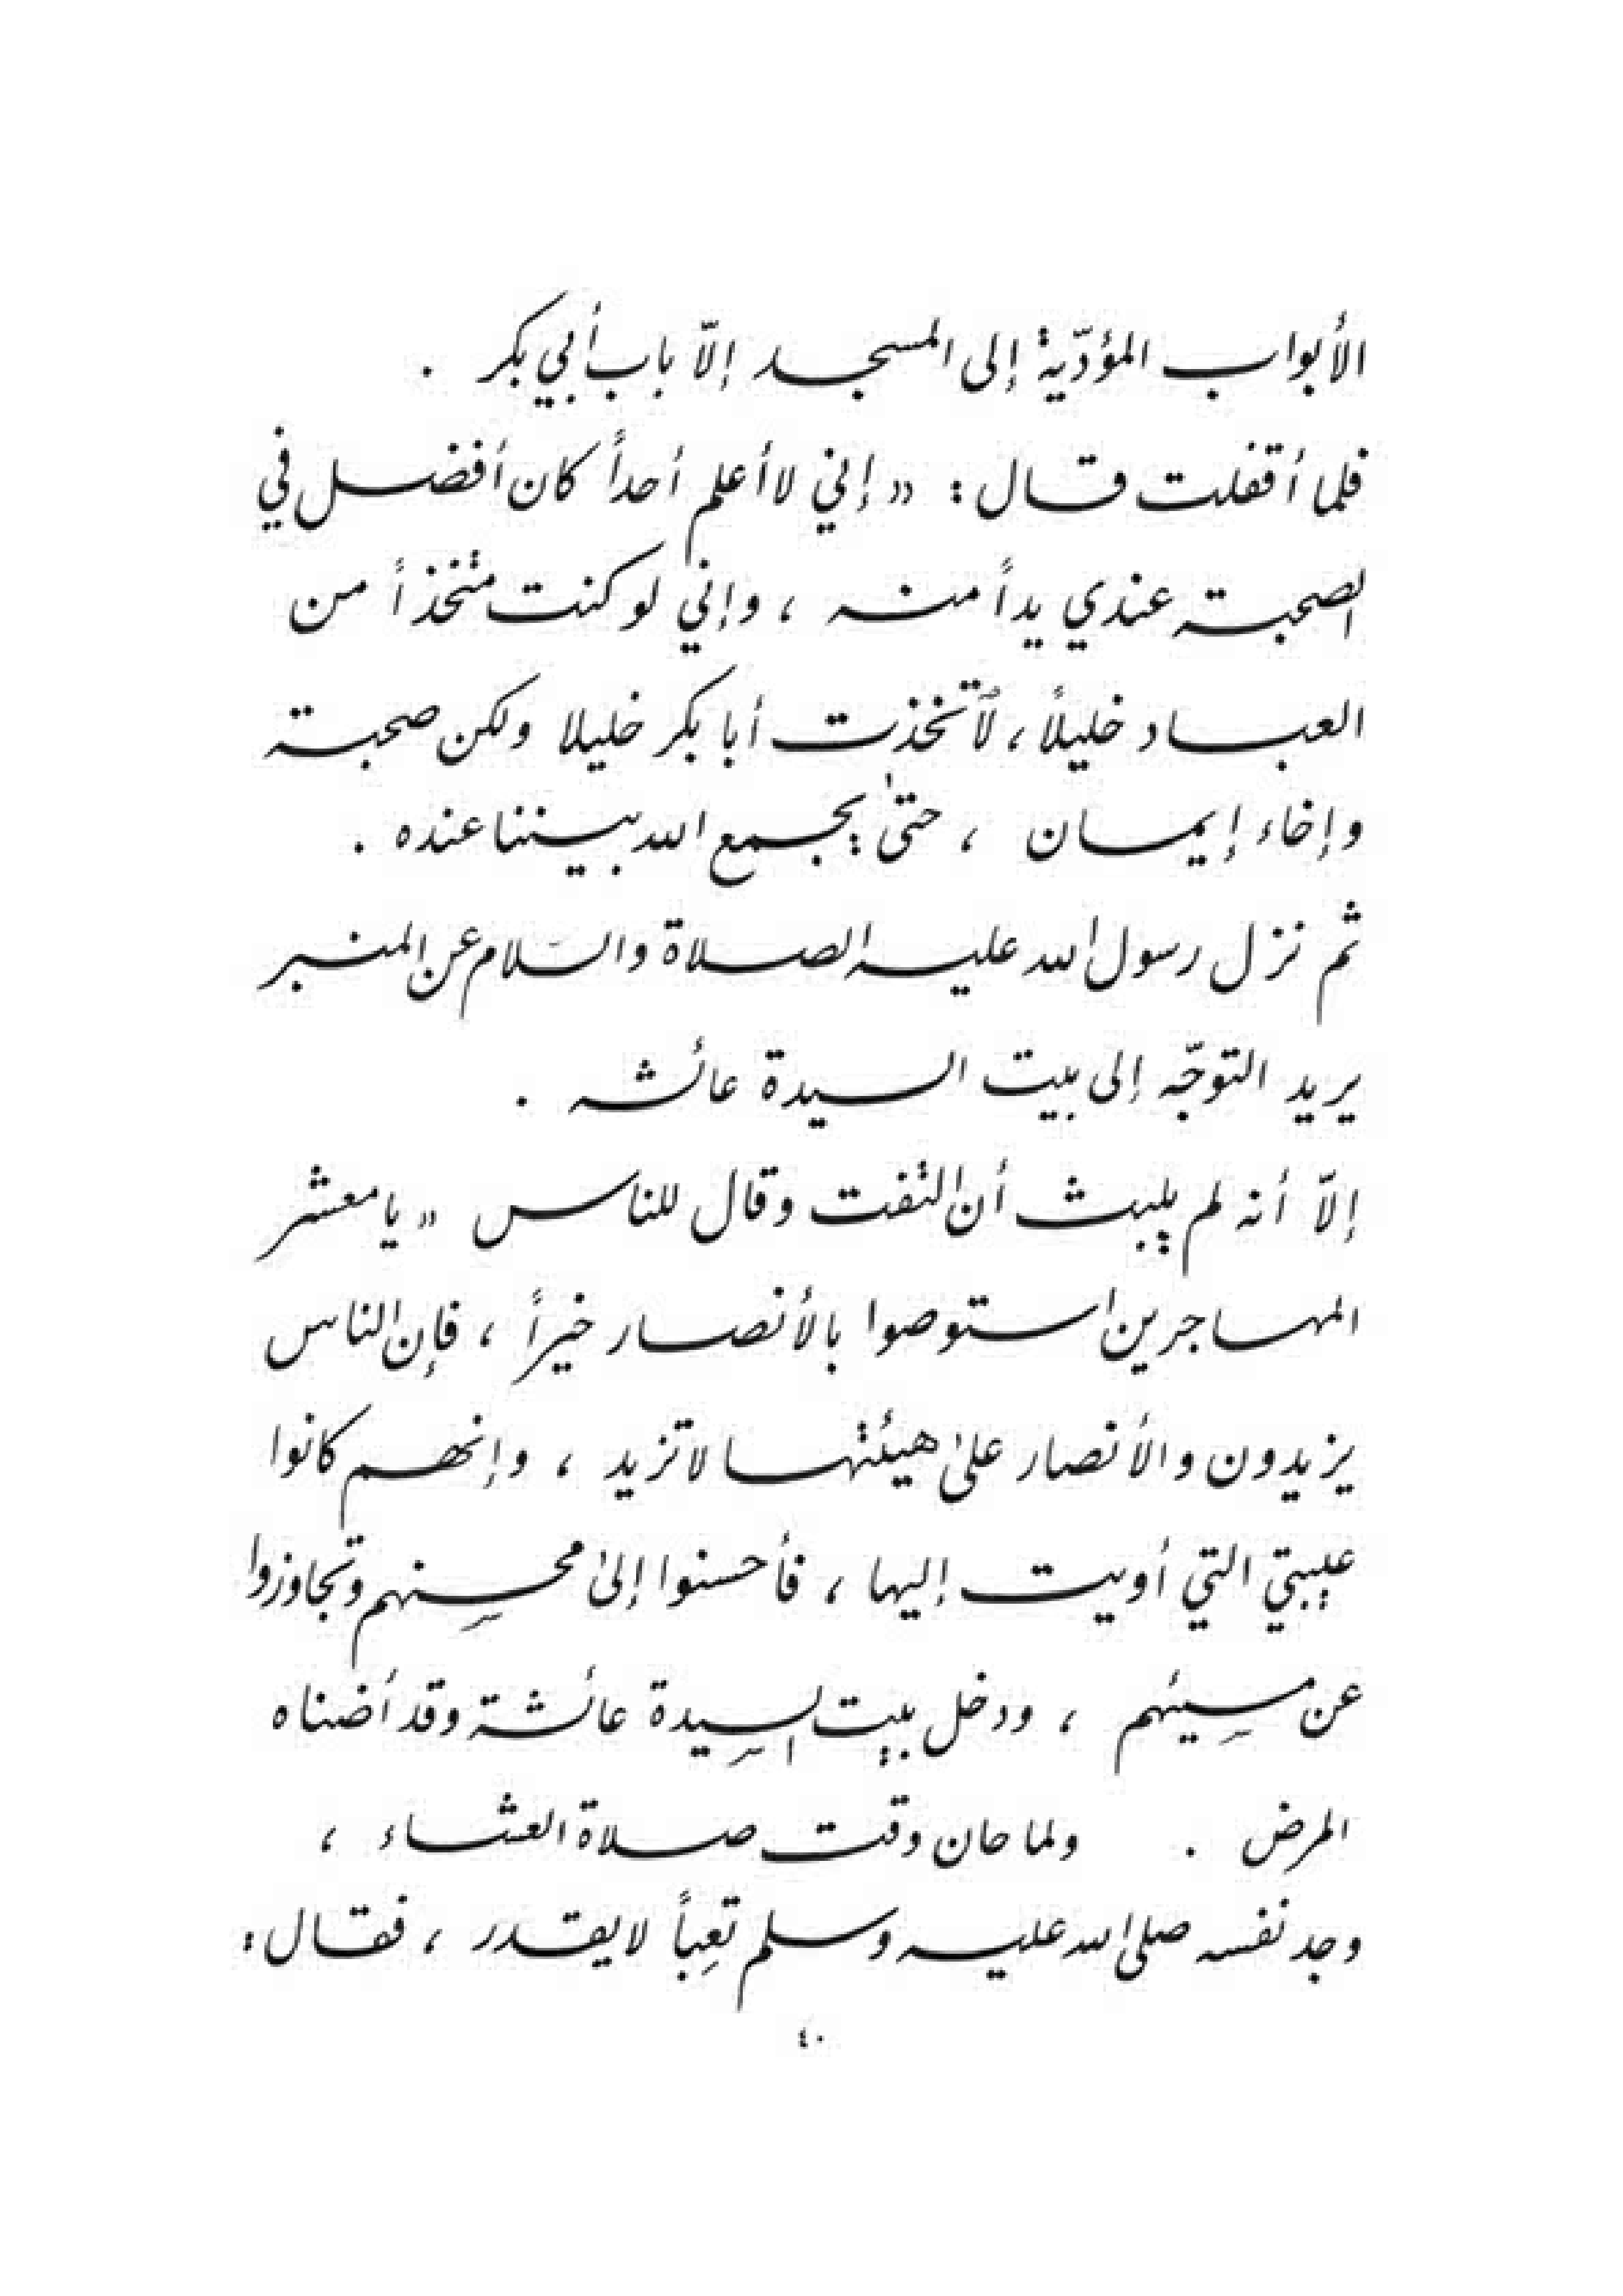 الأبواب المؤدّية إلى المسجد إلاّ باب أبي بكر .
فلما أقفلت قال : « إني لا أعلم أحداً كان أفضل في
الصحبة عندي يداً منه ، وإني لو كنت متخذاً من
العباد خليلاً ، لأتخذت أبا بكر خليلا ولكن صحبة
وإخاء إيمان ، حتىٰ يجمع الله بيننا عنده .
ثم نزل رسول الله عليه الصلاة والسّلام عن المنبر
يريد التوجّه إلى بيت السيدة عائشه .
إلاّ أنه لم يلبث أن التفت وقال للناس « يا معشر
المهاجرين استوصوا بالأنصار خيراً ، فإن الناس
يزيدون والأنصار علىٰ هيئتها لا تزيد ، وإنهم كانوا
عيبتي التي أويت إليها ، فأحسنوا إلىٰ محسِنهم وتجاوزوا
عن مسِيئهم ، ودخل بيت السِيدة عائشة وقد أضناه
المرض . ولما حان وقت صلاة العشاء ،
وجد نفسه صلى الله عليه وسلم تعِباً لا يقدر ، فقال :
٤٠